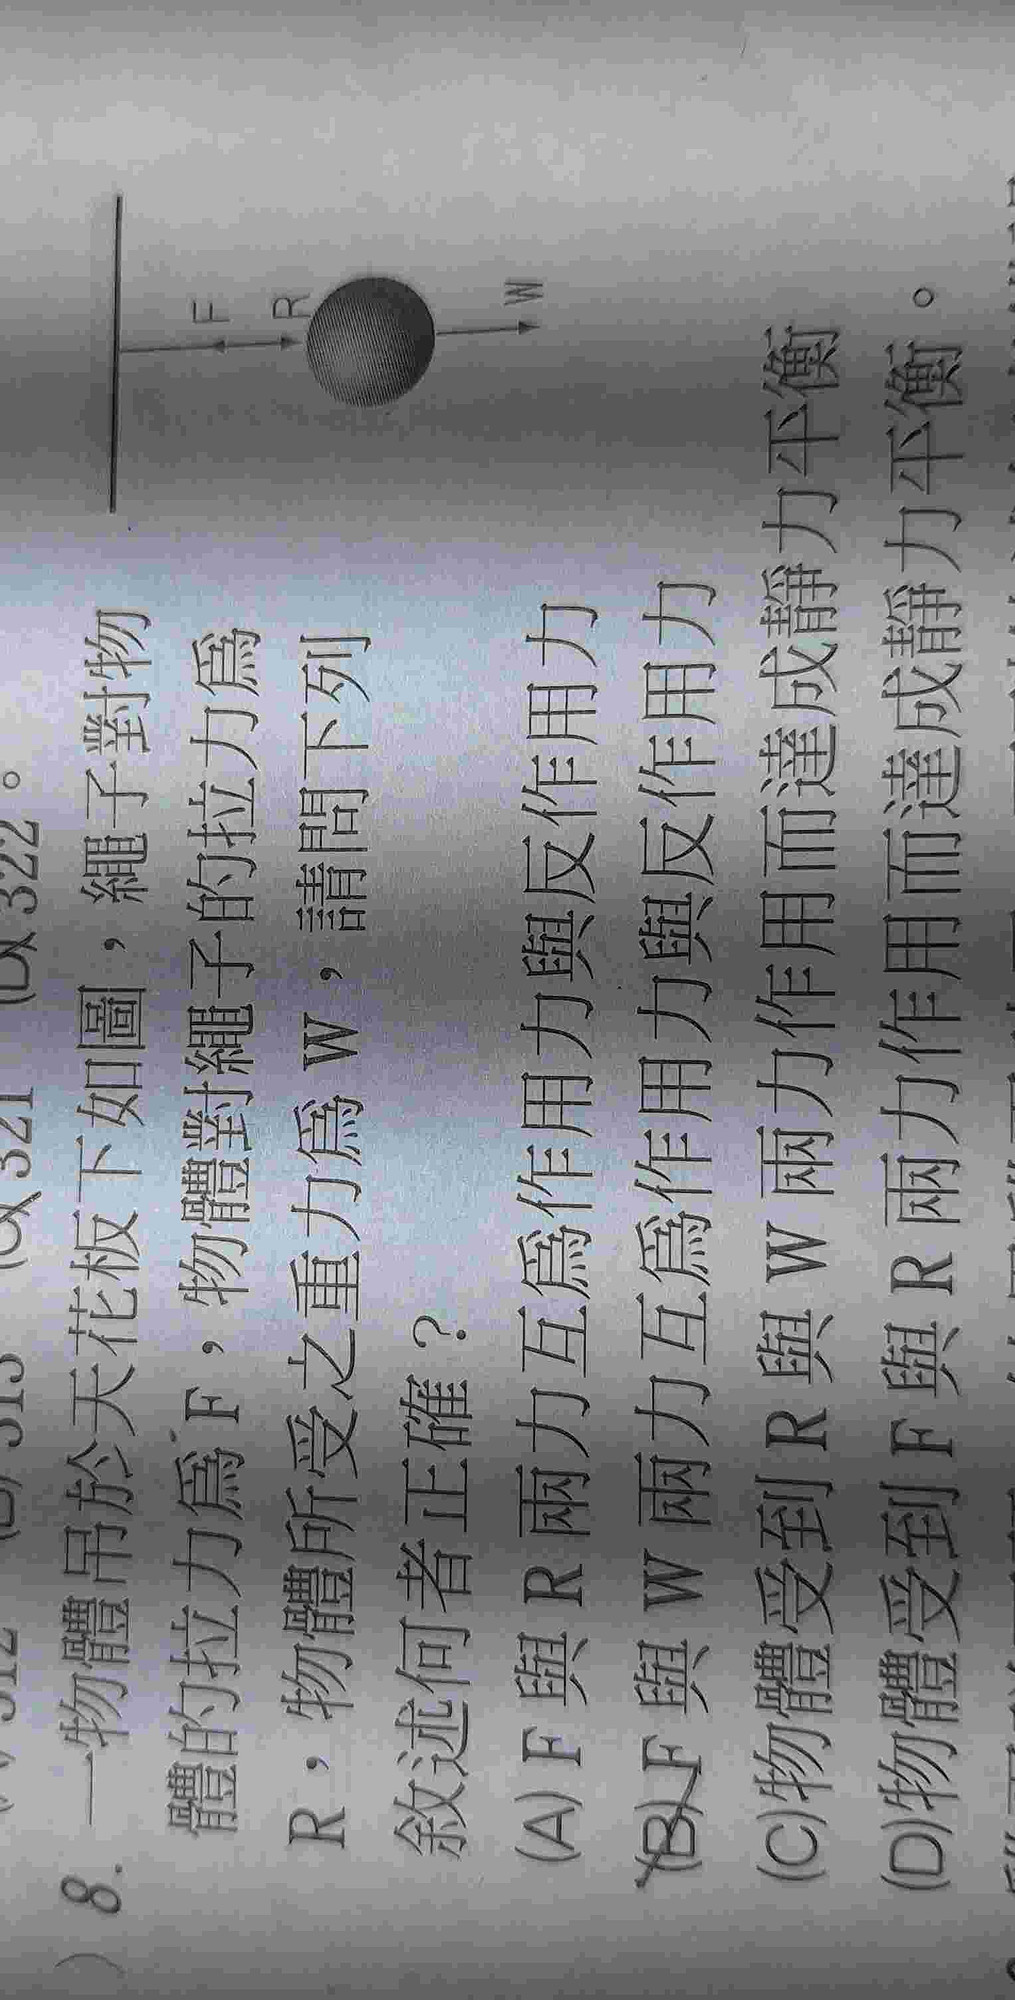 ) 8. 一物體吊於天花板下如圖，繩子對物
體的拉力為 F，物體對繩子的拉力為
R，物體所受之重力為 W，請問下列
敘述何者正確？
(A) F 與 R 兩力互為作用力與反作用力
(B) F 與 W 兩力互為作用力與反作用力
(C)物體受到 R 與 W 兩力作用而達成靜力平衡
(D)物體受到 F 與 R 兩力作用而達成靜力平衡。
F
R
W
322。